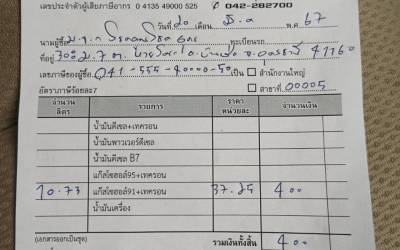 เลขประจำตัวผู้เสียภาษีอากร 0 4135 49000 525 042-282700
วันที่ 20 เดือน ธ.ค พ.ศ. 67
นามผู้ซื้อ ทะเบียนรถ
ที่อยู่ 41160
เลขภาษีของผู้ซื้อ 041-555-40000-50 เป็น สำนักงานใหญ่
อัตราภาษีร้อยละ7 สาขาที่ 00005
จำนวนลิตร รายการ ราคาหน่วยละ จำนวนเงิน
น้ำมันดีเซล+เทครอน
น้ำมันพาวเวอร์ดีเซล
น้ำมันดีเซล B7
แก๊สโซฮอล์95+เทครอน
10.73 แก๊สโซฮอล์91+เทครอน 37.25 400
น้ำมันเครื่อง
(เอกสารออกเป็นชุด) รวมเงินทั้งสิ้น 400